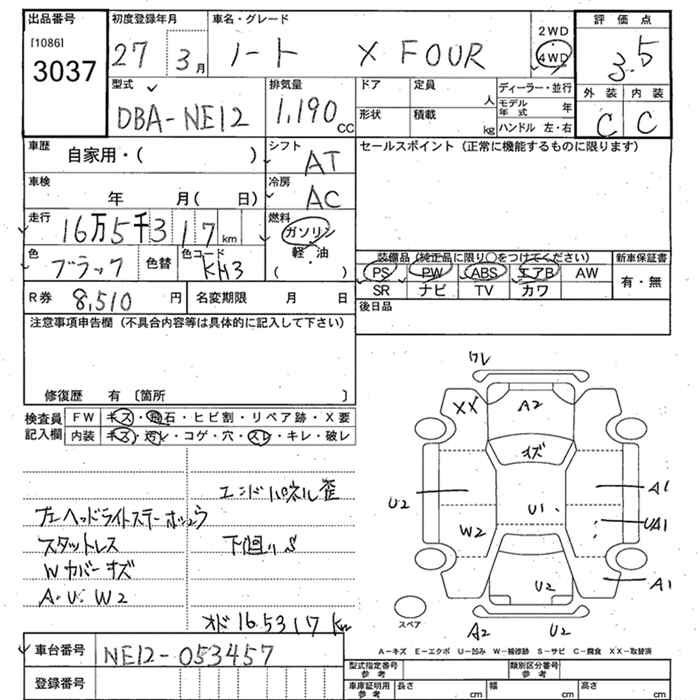 出品番号
[1086]
3037
初度登録年月
27 3月
車名・グレード
ノート X FOUR
2WD
4WD
評価点
3.5
外装 内装
C C
型式
DBA-NE12
排気量
1,190 CC
ドア
定員
人
形状
積載
kg
ディーラー・並行
モデル年式 年
ハンドル 左・右
車歴
自家用・( )
シフト
AT
セールスポイント(正常に機能するものに限ります)
車検
年 月( 日)
冷房
AC
走行
16万5千317km
燃料
ガソリン
軽・油
( )
色
ブラック
色替
色コード
KH3
装備品(純正品に限り○をつけてください)
PS PW ABS エアB AW
SR ナビ TV カワ
新車保証書
有・無
R券 8,510 円
名変期限 月 日
後日品
注意事項申告欄(不具合内容等は具体的に記入して下さい)
修復歴 有 〔箇所 〕
検査員記入欄
FW キズ・飛石・ヒビ割・リペア跡・X要
内装 キズ・汚レ・コゲ・穴・スレ・キレ・破レ
エンドパネル歪
スタットレス
下回りS
Wカバーキズ
A・U・W2
オド165317km
ワレ
XX
A2
キズ
U2
A1
U1
UA1
W2
A1
U2
スペア
A2
U2
A-キズ E-エクボ U-凹み W-補修跡 S-サビ C-腐食 XX-取替済
車台番号 NE12-053457
登録番号
型式指定番号
参考
類別区分番号
参考
車庫証明用
参考
長さ cm
幅 cm
高さ cm